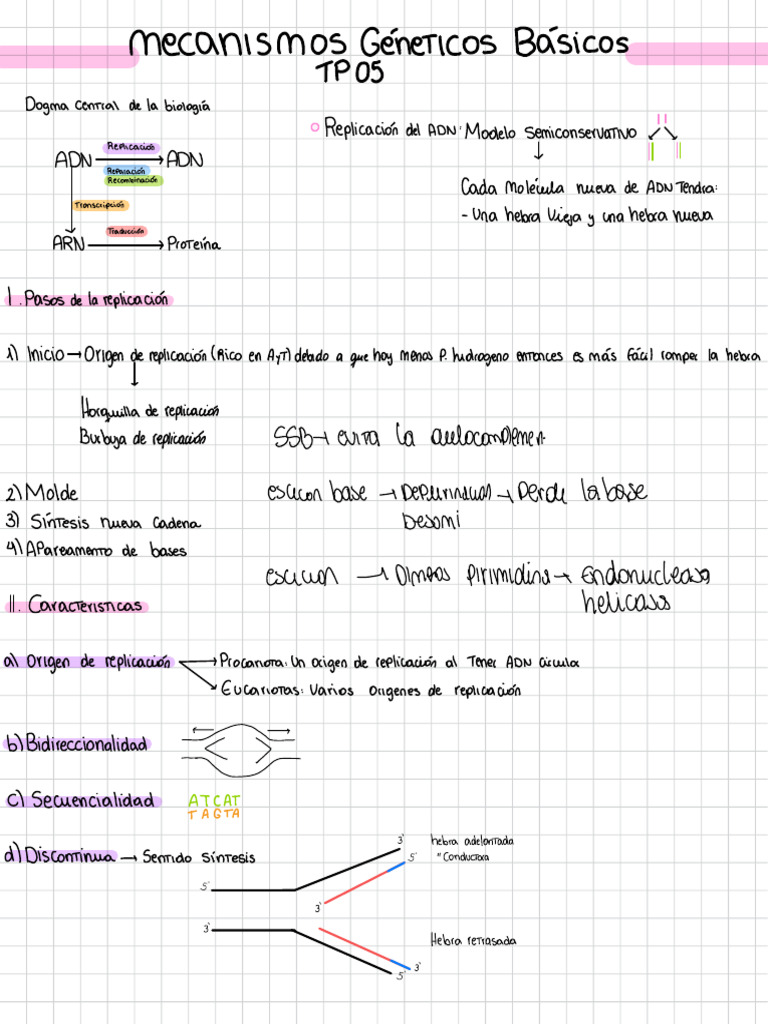 Mecanismos Géneticos Básicos
TP05
Dogma central de la biología
ADN Replicación ADN
Reparación
Recombinación
Transcripción
ARN Traducción Proteína
Replicación del ADN: Modelo semiconservativo
Cada molécula nueva de ADN Tendra:
- Una hebra vieja y una hebra nueva
I. Pasos de la replicación
1) Inicio → Origen de replicación (Rico en A y T) debido a que hay menos P. hidrogeno entonces es más fácil romper la hebra
Horquilla de replicación
Burbuja de replicación
SSB → evita la autocomplemen.
2) Molde
3) Síntesis nueva cadena
4) Apareamento de bases
escicion base → Depurinacion → Perde la base
Desami
escicion → Dimeros pirimidina → Endonucleasa
helicasa
II. Caracteristicas
a) Origen de replicación → Procariota: Un origen de replicación al Tener ADN circular
→ Eucariotas: Varios origenes de replicación
b) Bidireccionalidad
c) Secuencialidad
ATCAT
TAGTA
d) Discontinua → Sentido síntesis
3'
5'
5'
3'
hebra adelantada
"Conductora
3'
3'
5'
Hebra retrasada